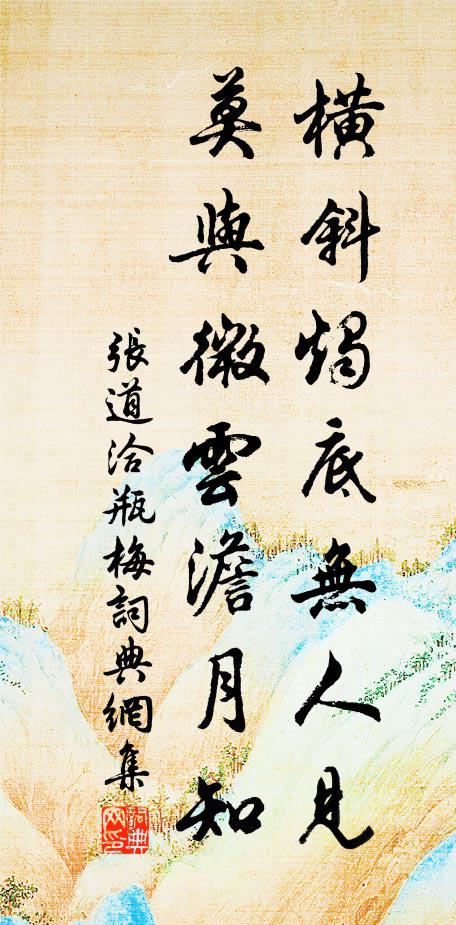 橫斜燭底無人見
莫與微雲澹月知
張道洽瓶梅詞典網集
詞典網印